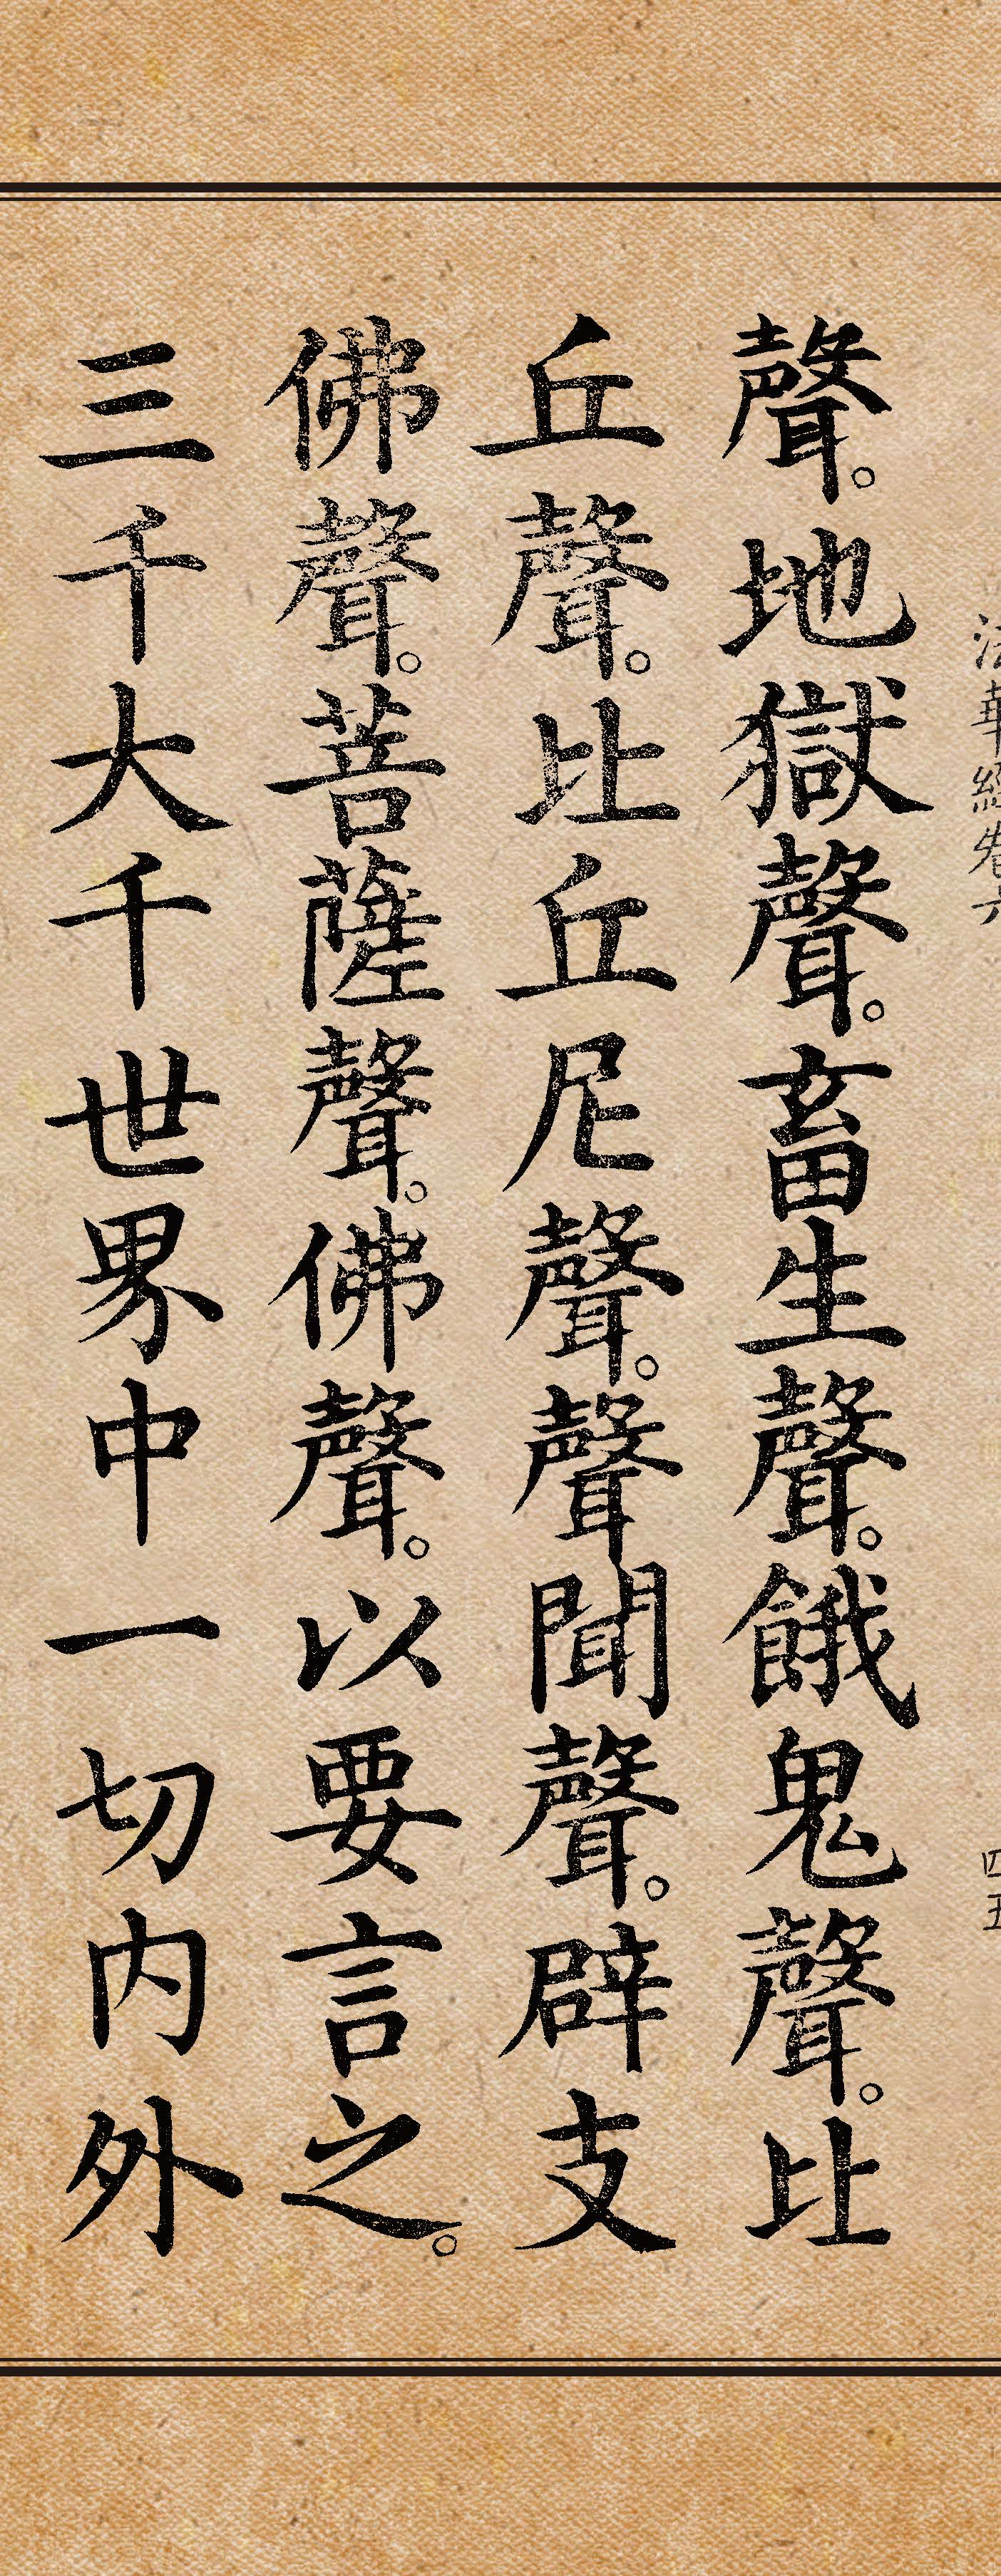 法華經卷六
四五
聲。地獄聲。畜生聲。餓鬼聲。比
丘聲。比丘尼聲。聲聞聲。辟支
佛聲。菩薩聲。佛聲。以要言之。
三千大千世界中一切內外